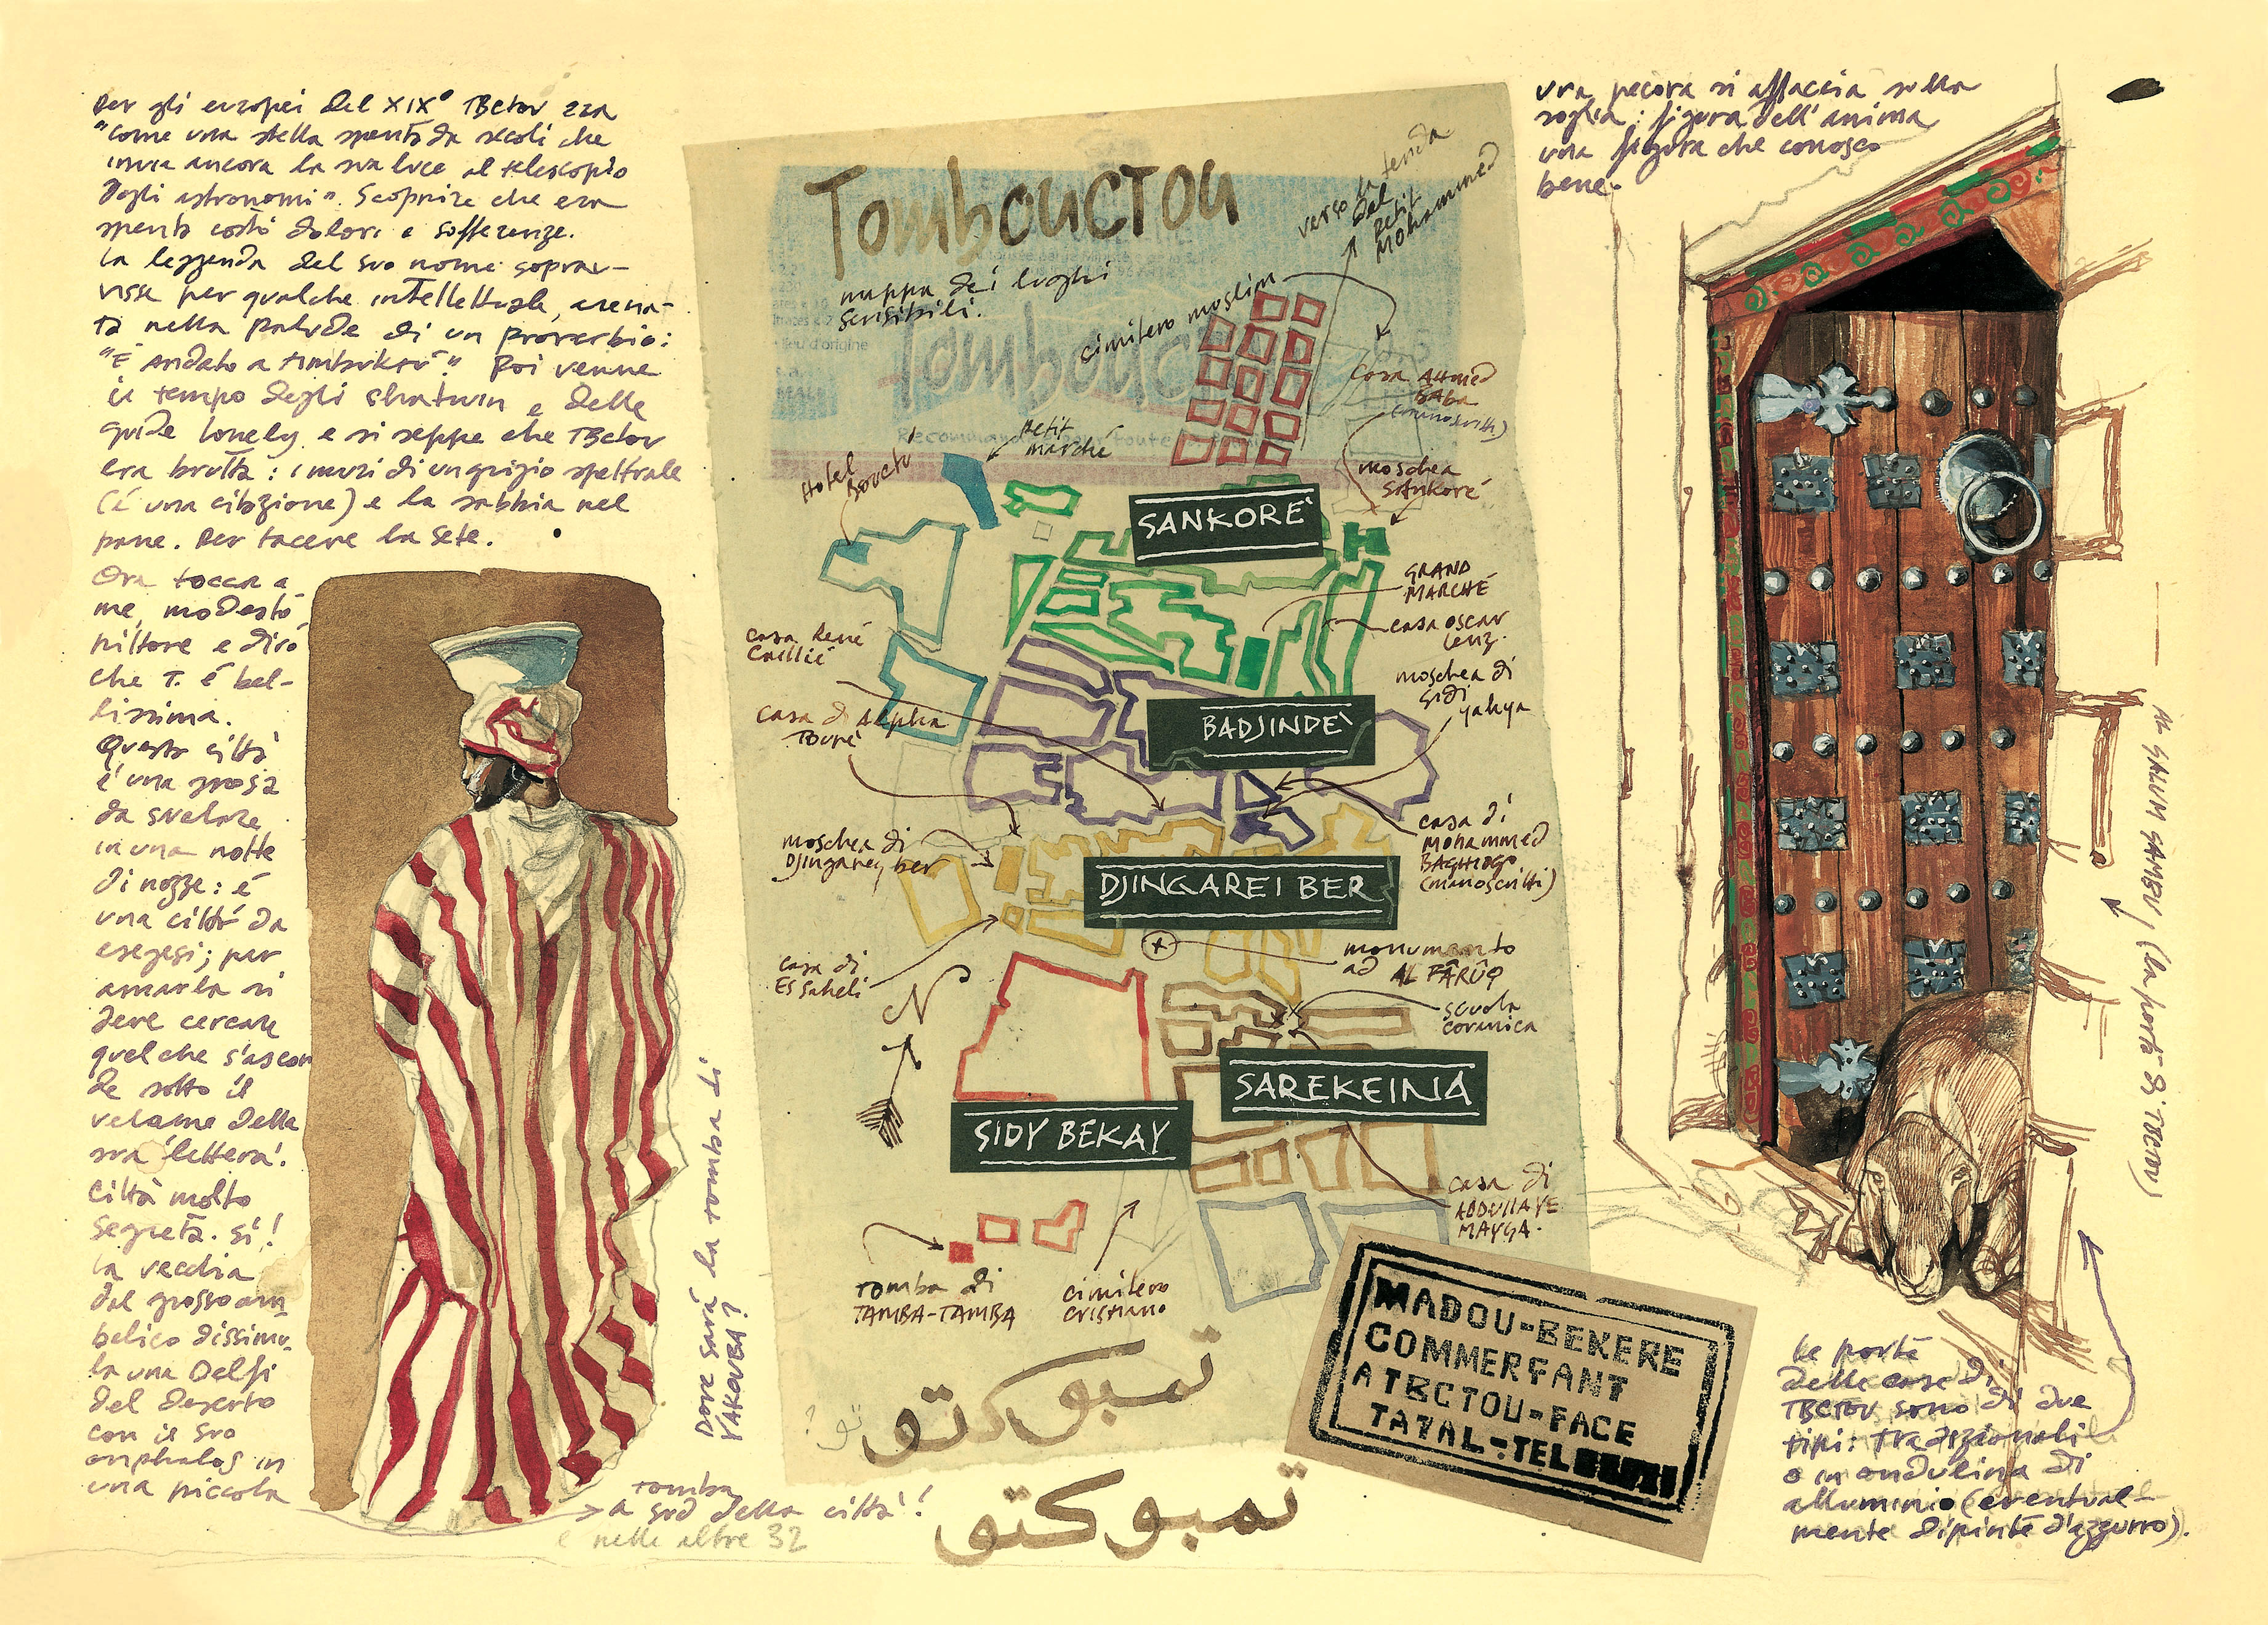 Per gli europei del XIX° TBctou era
"come una stella spenta da secoli che
invia ancora la sua luce al telescopio
degli astronomi". Scoprire che era
spenta costò dolori e sofferenze.
La leggenda del suo nome soprav-
visse per qualche intellettuale, arena-
ta nella palude di un proverbio:
"È andato a Timbuktù". Poi venne
il tempo degli chatwin e delle
guide lonely e si seppe che TBctou
era brutta: i muri di un grigio spettrale
(è una citazione) e la sabbia nel
pane. Per tacere la sete.
Ora tocca a
me, modesto
pittore e dirò
che T. è bel-
lissima.
Questa città
è una sposa
da svelare
in una notte
di nozze: è
una città da
esegesi; per
amarla si
deve cercare
quel che s'ascon
de sotto il
velame della
sua 'lettera'.
Città molto
segreta. Sì!
la vecchia
dal grosso om
belico dissimu-
la una Delfi
del deserto
con il suo
omphalos in
una piccola
tomba
a sud della città!
e nelle altre 32
Dove sarà la tomba di
YAKOUBA?
Tombouctou
mappa dei luoghi
sensibili.
Tombouc
lieu d'origine
Recommand toute
verso la tenda
del
petit
Mohammed
cimitero moslim
Casa Ahmed
Baba
(manoscritti)
petit
marché
Hotel
Bouctu
moschea
Sankoré
SANKORE'
GRAND
MARCHÉ
casa oscar
lenz.
casa René
Caillié
moschea di
Sidi
Yahya
casa di Alpha
Touré
BADJINDE'
moschea di
Djingarey ber
casa di
Mohammed
BAGHIOGO
(manoscritti)
DJINGAREI BER
casa di
Es Saheli
monumento
ad AL FÂRÛQ
N
scuola
coranica
SAREKEINA
SIDY BEKAY
casa di
ABDULLAYE
MAYGA.
tomba di
TAMBA-TAMBA
cimitero
cristiano
تمبوكتو
تو؟
تمبوكتو
MADOU-BEKERE
COMMERFANT
A TBCTOU-FACE
TAZAL-TEL
una pecora si affaccia sulla
soglia: figura dell'anima
una figura che conosco
bene.
AL GALUM GAMBU, (la porta di TBCTOU)
Le porte
delle case di
TBCTOU sono di due
tipi: Tradizionali
o in ondulina di
alluminio (eventual-
mente dipinte d'azzurro).